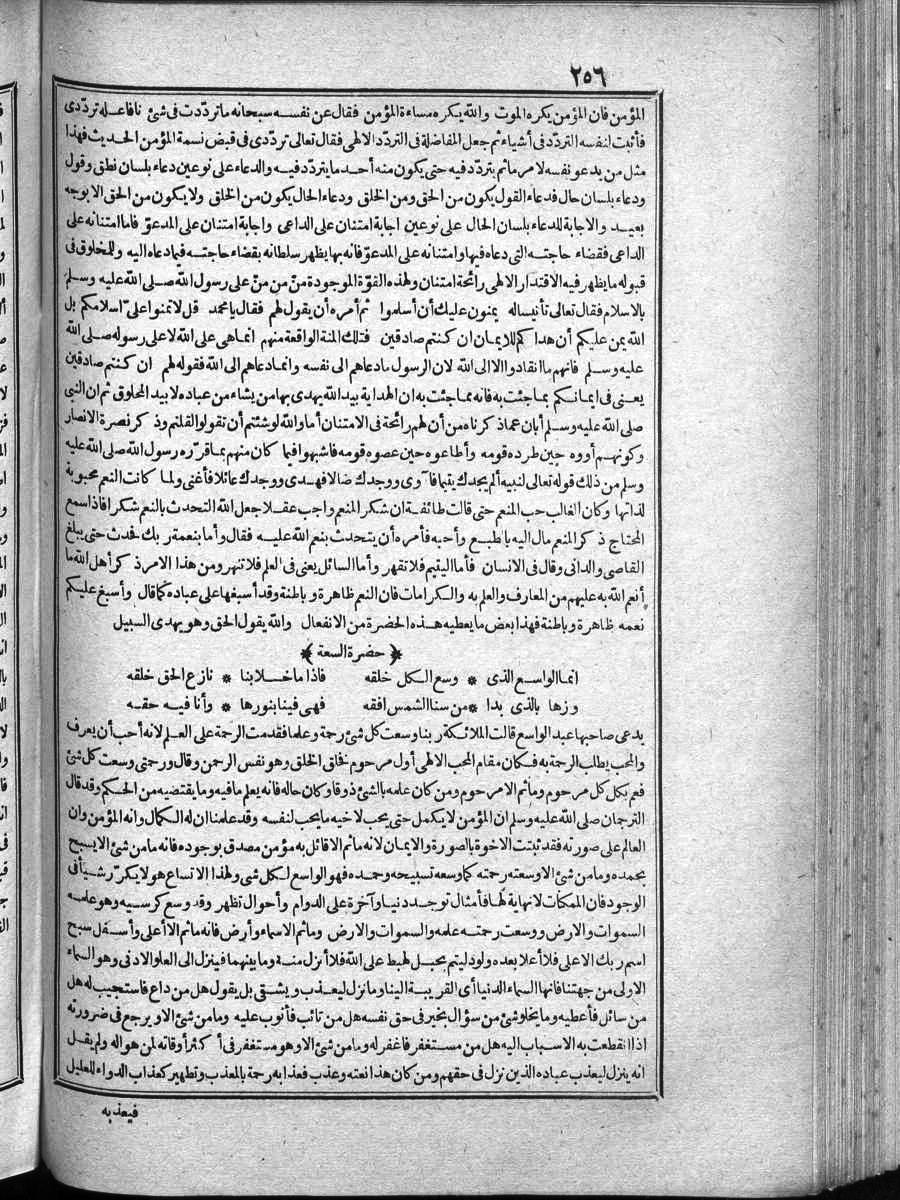 ٢٥٦
المؤمن فان المؤمن يكره الموت والله يكره مساءة المؤمن فقال عن نفسه سبحانه ما تردّدت فى شئ انا فاعله تردّدى
فأثبت لنفسه التردّد فى أشياء ثم جعل المفاضلة فى التردّد الالهى فقال تعالى تردّدى فى قبض نسمة المؤمن الحديث فهذا
مثل من يدعو نفسه لامر ما ثم يتردّد فيه حتى يكون منه أحد ما يتردّد فيه والدعاء على نوعين دعاء بلسان نطق وقول
ودعاء بلسان حال فدعاء القول يكون من الحق ومن الخلق ودعاء الحال يكون من الخلق ولا يكون من الحق الا بوجه
بعيد والاجابة للدعاء بلسان الحال على نوعين اجابة امتنان على الداعى واجابة امتنان على المدعوّ فاما امتنانه على
الداعى فقضاء حاجته التى دعاه فيها وامتنانه على المدعوّ فانه بها يظهر سلطانه بقضاء حاجته فيما دعاه اليه وللمخلوق فى
قبوله ما يظهر فيه الاقتدار الالهى رائحة امتنان ولهذه القوّة الموجودة منّ من منّ على رسول الله صلى الله عليه وسلم
بالاسلام فقال تعالى تأنيساله يمنون عليك أن أسلموا ثم أمره أن يقول لهم فقال يا محمد قل لا تمنوا علىّ اسلامكم بل
الله يمن عليكم أن هداكم للايمان ان كنتم صادقين فتلك المنة الواقعة منهم انما هى على الله لا على رسوله صلى الله
عليه وسلم فانهم ما انقادوا الا الى الله لان الرسول مادعاهم الى نفسه وانما دعاهم الى الله فقوله لهم ان كنتم صادقين
يعنى فى ايمانكم بما جئت به فانه مما جئت به ان الهداية بيد الله يهدى بها من يشاء من عباده لا بيد المخلوق ثم ان النبى
صلى الله عليه وسلم أبان عما ذكرناه من أن لهم رائحة فى الامتنان أما والله لو شئتم أن تقولوا لقلتم وذكر نصرة الانصار
وكونهم أووه حين طرده قومه وأطاعوه حين عصوه قومه فاشبهوا فيما كان منهم بما قرّره رسول الله صلى الله عليه
وسلم من ذلك قوله تعالى لنبيه ألم يجدك يتيما فآوى ووجدك ضالا فهدى ووجدك عائلا فأغنى ولما كانت النعم محبوبة
لذاتها وكان الغالب حب المنعم حتى قالت طائفة ان شكر المنعم واجب عقلا جعل الله التحدث بالنعم شكرا فاذا سمع
المحتاج ذكر المنعم مال اليه بالطبع وأحبه فأمره أن يتحدث بنعم الله عليه فقال وأما بنعمة ربك فحدث حتى يبلغ
القاصى والدانى وقال فى الانسان فأما اليتيم فلا تقهر وأما السائل يعنى فى العلم فلا تنهر ومن هذا الامر ذكر أهل الله ما
أنعم الله به عليهم من المعارف والعلم به والكرامات فان النعم ظاهرة وباطنة وقد أسبغها على عباده كما قال وأسبغ عليكم
نعمه ظاهرة وباطنة فهذا بعض ما يعطيه هذه الحضرة من الانفعال والله يقول الحق وهو يهدى السبيل
﴿ حضرة السعة ﴾
انما الواسع الذى * وسع الكل خلقه فاذا ما خلا بنا * نازع الحق خلقه
وزها بالذى بدا * من سنا الشمس افقه فهى فينا بنورها * وأنا فيه حقه
يدعى صاحبها عبد الواسع قالت الملائكة ربنا وسعت كل شئ رحمة وعلما فقدمت الرحمة على العلم لانه أحب أن يعرف
والمحب يطلب الرحمة به فكان مقام المحب الالهى أول مرحوم فخلق الخلق وهو نفس الرحمن وقال ورحمتى وسعت كل شئ
فعم بكل كل مرحوم وما ثم الا مرحوم ومن كان علمه بالشئ ذوقا وكان حاله فانه يعلم ما فيه وما يقتضيه من الحكم وقد قال
الترجمان صلى الله عليه وسلم ان المؤمن لا يكمل حتى يحب لاخيه ما يحب لنفسه وقد علمنا ان له الكمال وانه المؤمن وان
العالم على صورته فقد ثبتت الاخوة بالصورة والايمان لانه ما ثم الا قائل به مؤمن مصدق بوجوده فانه ما من شئ الا يسبح
بحمده وما من شئ الا وسعته رحمته كما وسعه تسبيحه وحمده فهو الواسع لكل شئ ولهذا الاتساع هو لا يكرّر شيأ فى
الوجود فان الممكنات لا نهاية لها فأمثال توجد دنيا وآخرة على الدوام وأحوال تظهر وقد وسع كرسيه وهو علمه
السموات والارض ووسعت رحمته علمه والسموات والارض وما ثم الا سماء وأرض فانه ما ثم الا أعلى وأسفل سبح
اسم ربك الاعلى فلا أعلا بعده ولو دليتم بحبل لهبط على الله فلا أنزل منه وما بينهما فينزل الى العلو الادنى وهو السماء
الاولى من جهتنا فانها السماء الدنيا أى القريبة الينا وما نزل ليعذب ويشقى بل يقول هل من داع فاستجيب له هل
من سائل فأعطيه وما يخلو شئ من سؤال بخير فى حق نفسه هل من تائب فأتوب عليه وما من شئ الا ويرجع فى ضرورته
اذا انقطعت به الاسباب اليه هل من مستغفر فاغفر له وما من شئ الا وهو مستغفر فى أكثر أوقاته لمن هو اله ولم يقل
انه ينزل ليعذب عباده الذين نزل فى حقهم ومن كان هذا نعته وعذب فعذابه رحمة بالمعذب وتطهير كعذاب الدواء للعليل
فيعذبه